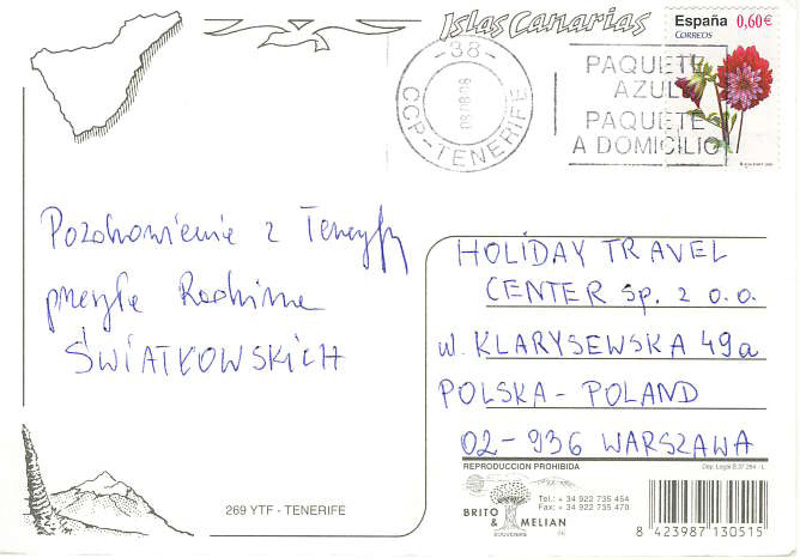 Islas Canarias
España 0,60€
CORREOS
-38-
CCP-TENERIFE
08 08 08
PAQUETE
AZUL
PAQUETE
A DOMICILIO
Pozdrowienia z Teneryfy
przesyła Rodzina
ŚWIATKOWSKICH
HOLIDAY TRAVEL
CENTER sp. z o.o.
ul. KLARYSEWSKA 49a
POLSKA - POLAND
02-936 WARSZAWA
REPRODUCCION PROHIBIDA
Dep. Legal B.37.264 - L
BRITO & MELIAN
SOUVENIRS
Tel.: + 34 922 735 454
Fax: + 34 922 735 479
269 YTF - TENERIFE
8 423987 130515